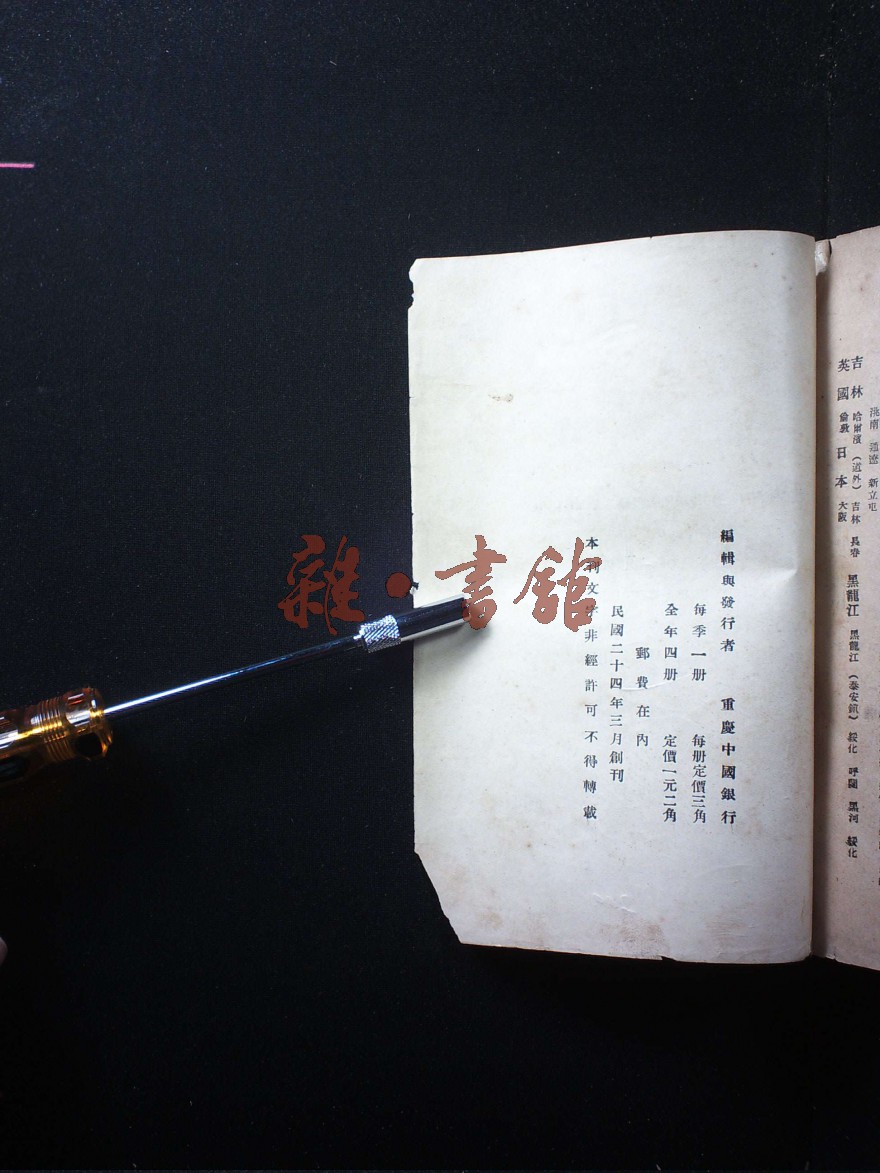 洮南 通遼 新立屯
吉林 哈爾濱（道外）吉林 長春 黑龍江 黑龍江（泰安鎮）綏化 呼蘭 黑河 綏化
英國 倫敦 日本 大阪
編輯與發行者 重慶中國銀行
每季一册 每册定價三角
全年四册 定價一元二角
郵費在內
民國二十四年三月創刊
本刊文字非經許可不得轉載
雜·書館